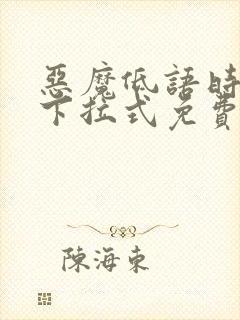 惡魔低語時
下拉式免費
陳海東